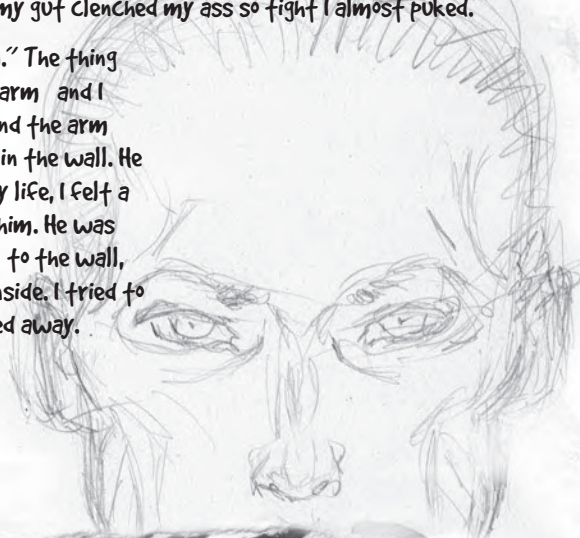 my gut clenched my ass so tight I almost puked.
." The thing
arm and I
nd the arm
in the wall. He
y life, I felt a
him. He was
to the wall,
nside. I tried to
ed away.